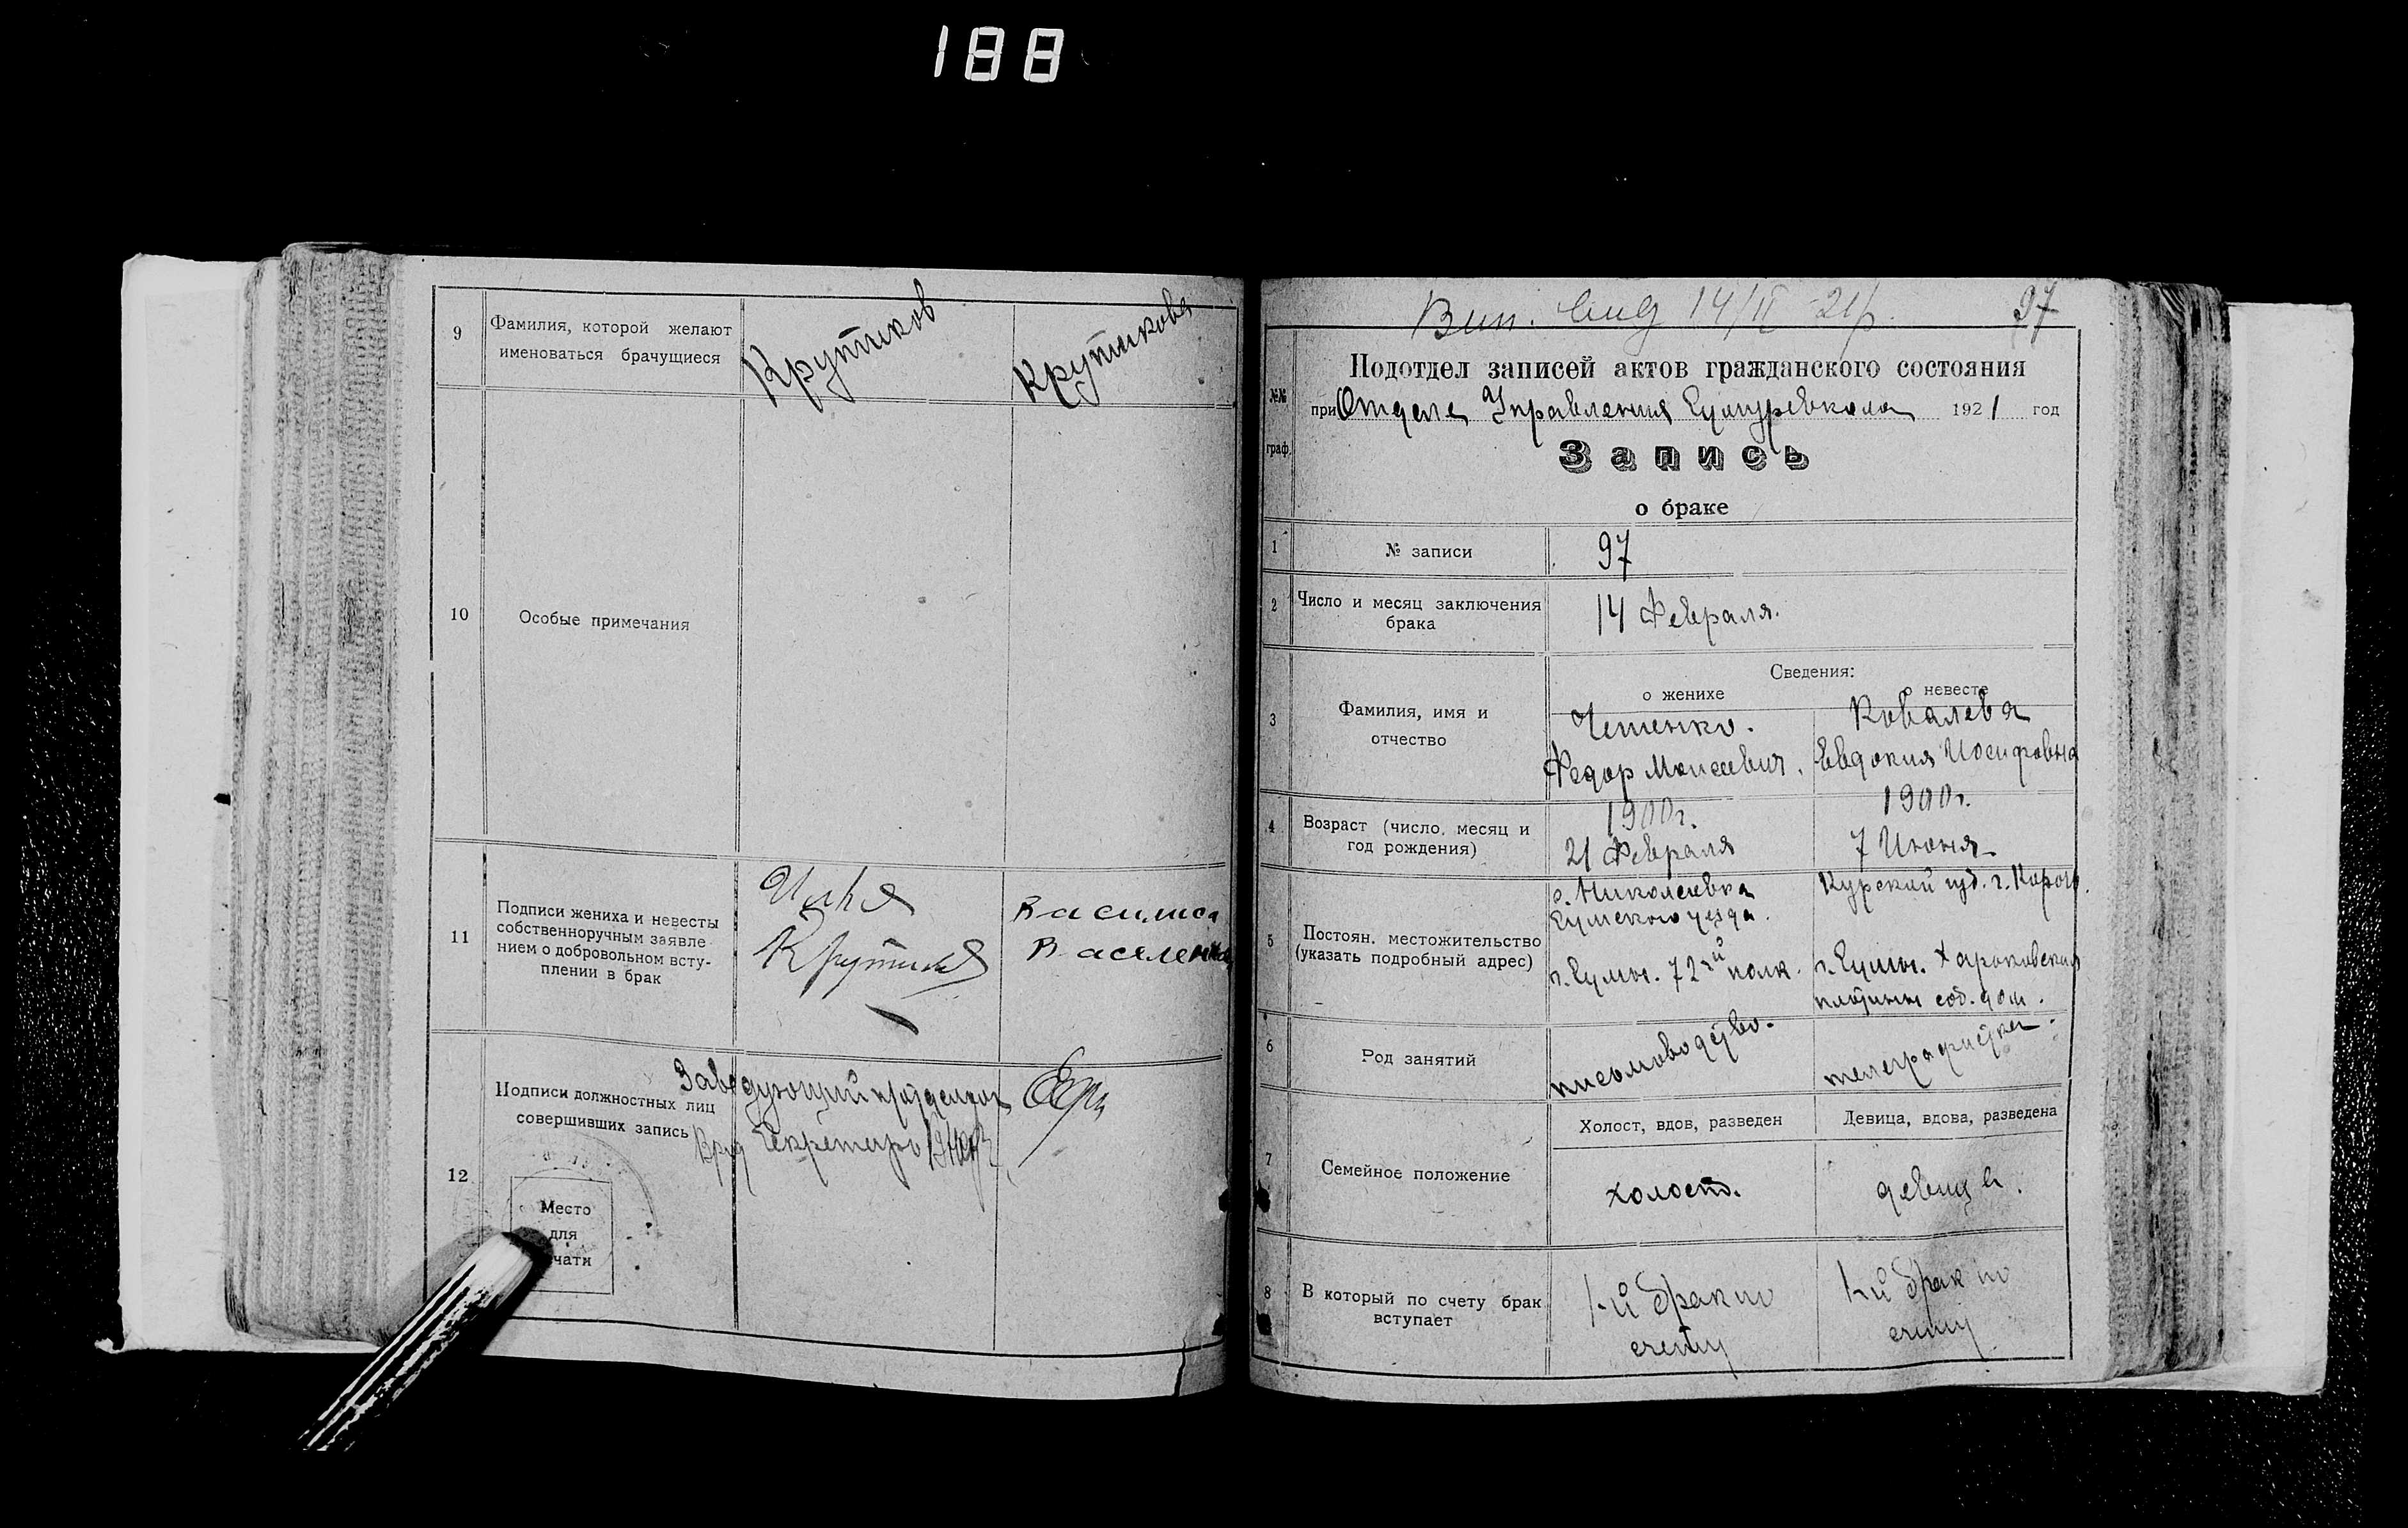 188
9
Фамилия, которой желают
именоваться брачущиеся
Крутиков
Крутикова
10
Особые примечания
11
Подписи жениха и невесты
собственноручным заявле-
нием о добровольном всту-
плении в брак
Илья
Крутиков
Василиса
Василенко
12
Подписи должностных лиц
совершивших запись
Заведующий подотделом
Врид Секретарь
Место
для
чати
Вып. 14/II 21г.
97
Подотдел записей актов гражданского состояния
№№
граф.
при Отделе Управления Сумуревкома 1921 год
Запись
о браке
1
№ записи
97
2
Число и месяц заключения
брака
14 Февраля.
Сведения:
о женихе
о невесте
3
Фамилия, имя и
отчество
Федор Моисеевич.
Ковалева
Евдокия Иосифовна
4
Возраст (число, месяц и
год рождения)
1900г.
21 Февраля
1900г.
7 Июня
5
Постоян. местожительство
(указать подробный адрес)
с. Николаевка
Сумского уезда.
г. Сумы. 72й полк.
Курской губ. г. Короч.
г. Сумы. Харьковская
соб. дом.
6
Род занятий
письмоводство.
телеграфистка.
7
Семейное положение
Холост, вдов, разведен
Девица, вдова, разведена
холост.
девица.
8
В который по счету брак
вступает
1-й брак по
счету
1-й брак по
счету